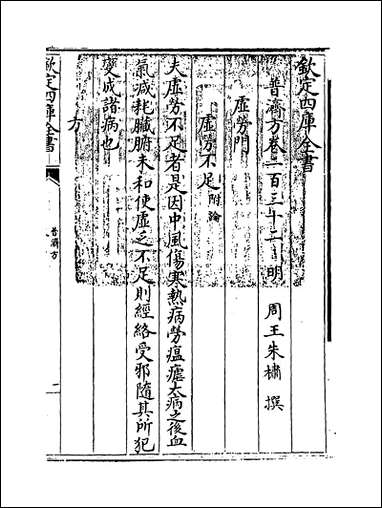 欽定四庫全書
普濟方卷二百三十二 明 周王朱橚 撰
虛勞門
虛勞不足 附論
夫虛勞不足者是因中風傷寒熱病勞瘟瘧太病之後血
氣減耗臟腑未和使虛乏不足則經絡受邪隨其所犯
變成諸病也
方
欽定四庫全書
普濟方
一